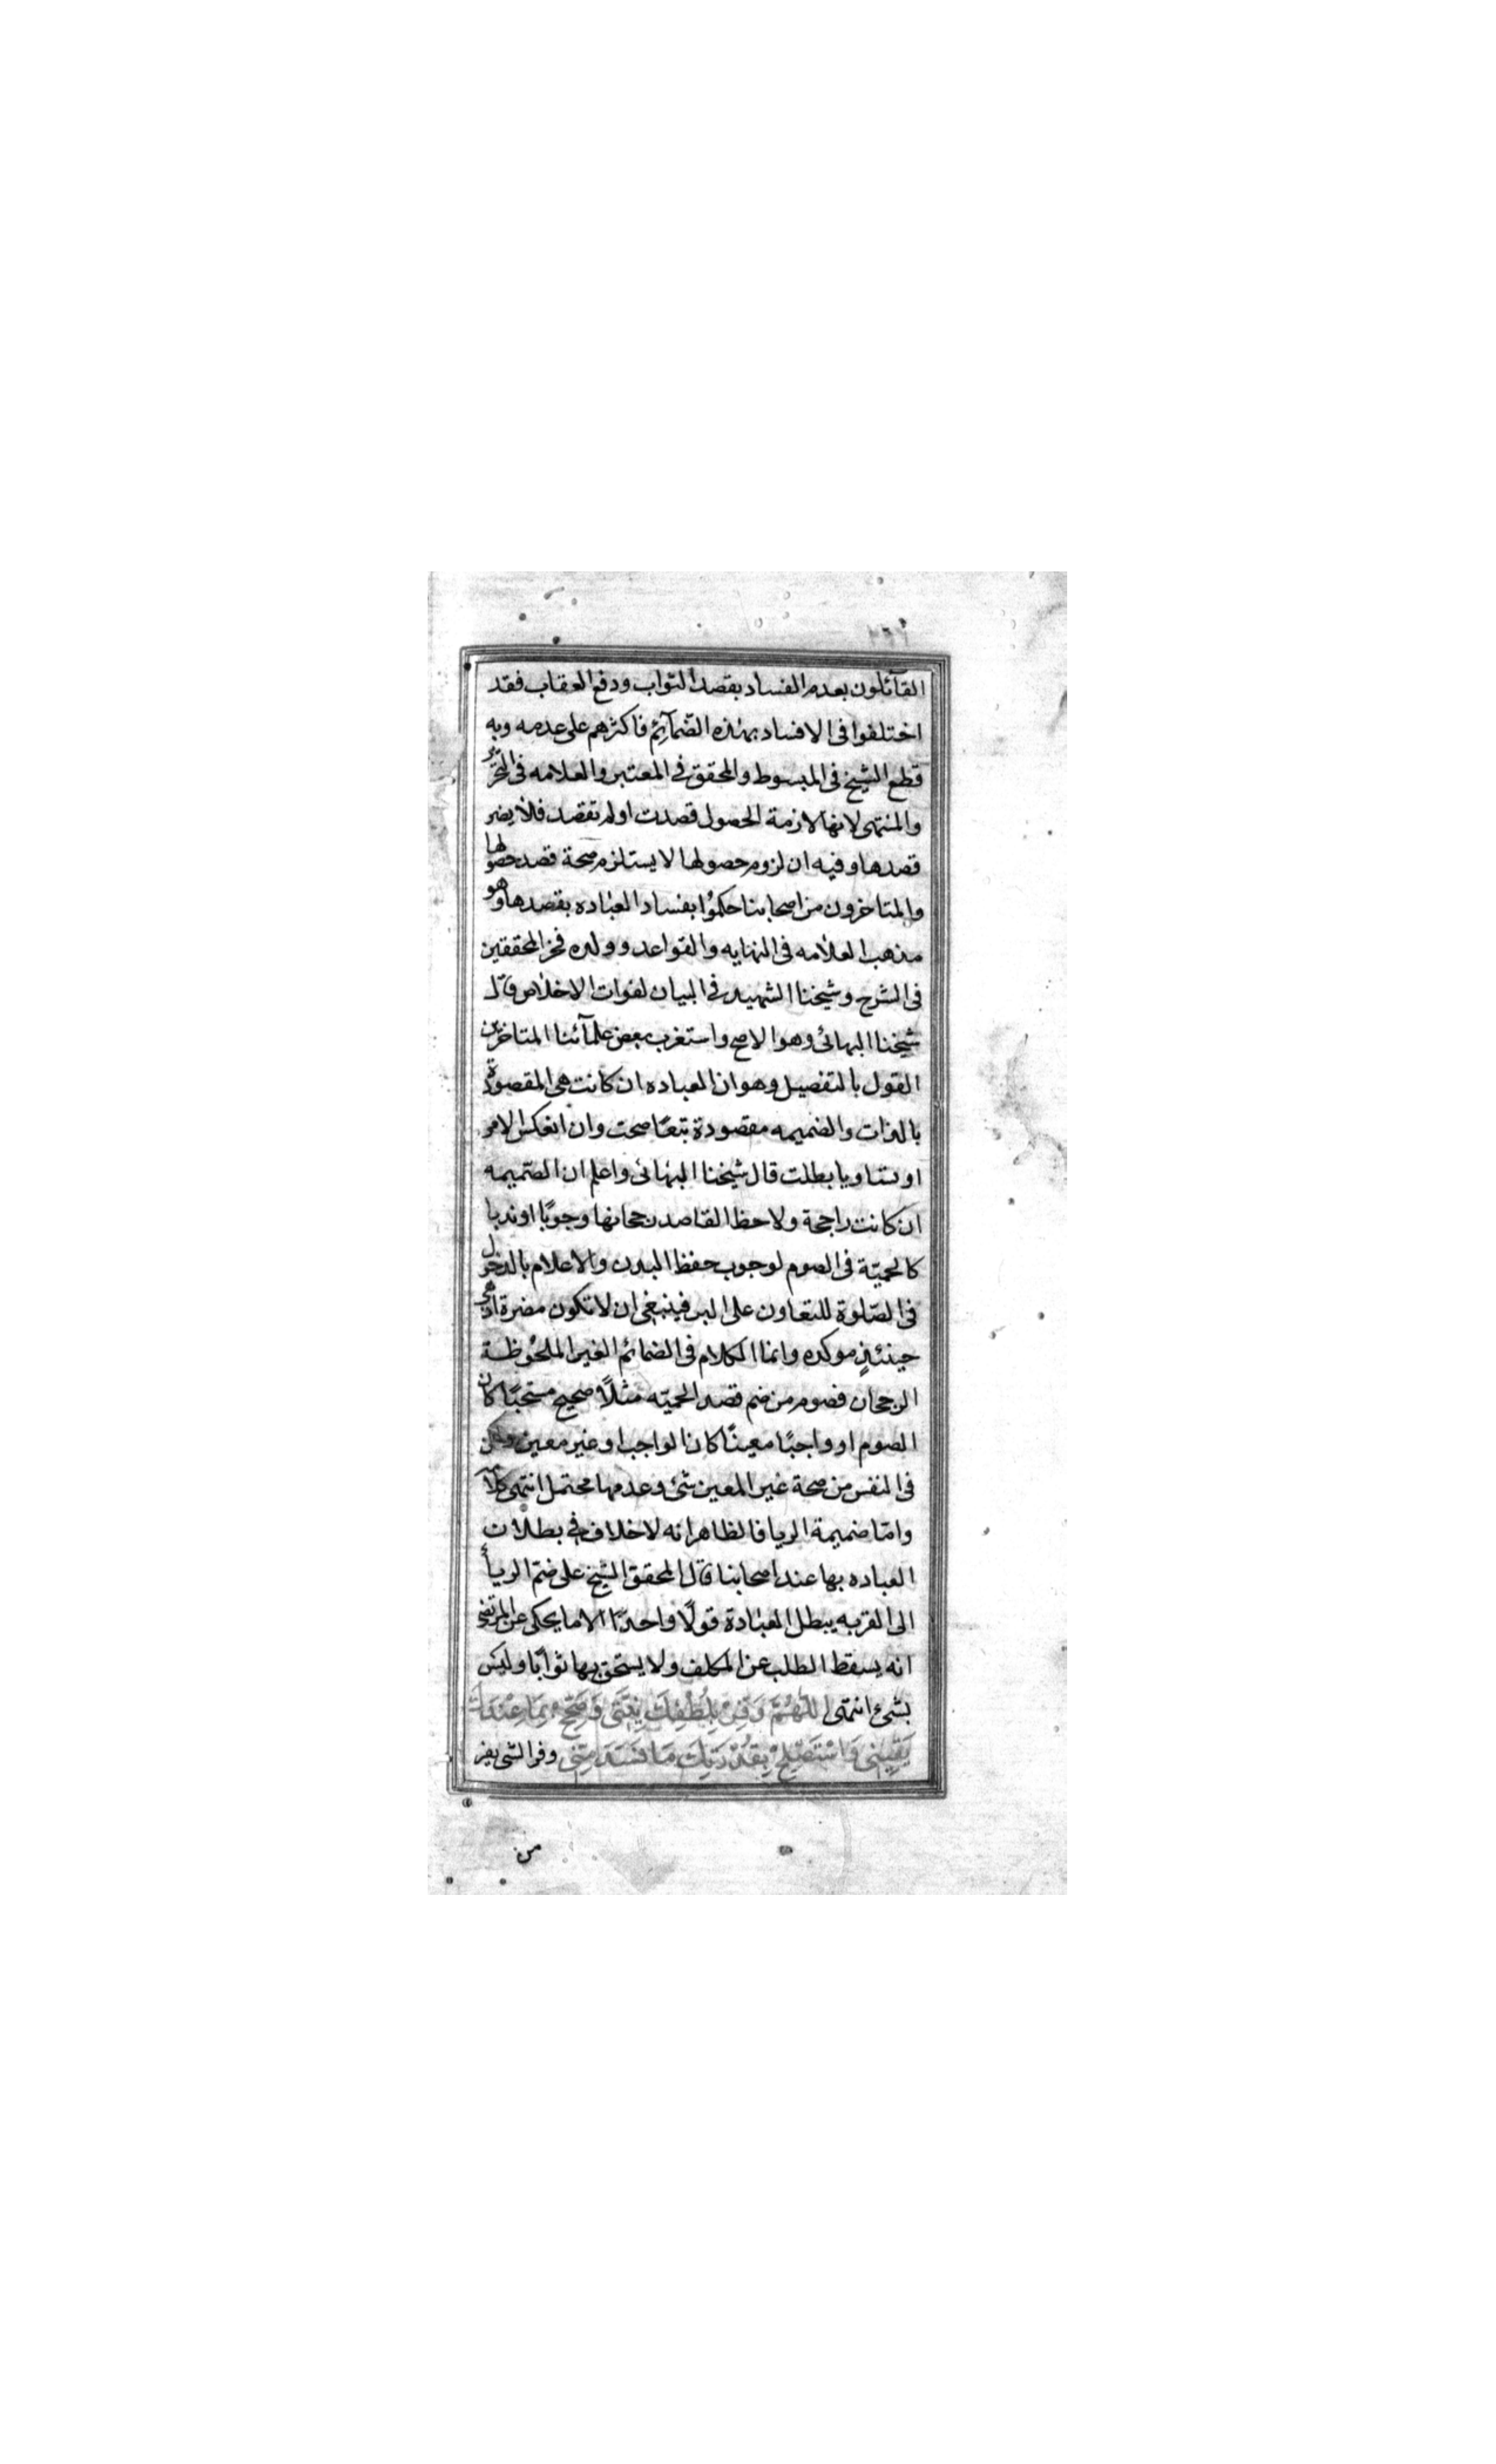 القآئلون بعدم الفساد بقصد الثواب ودفع العقاب فقد
اختلفوا فى الافساد بهذه الضمآئم فاكثرهم على عدمه وبه
قطع الشيخ فى المبسوط والمحقق فى المعتبر والعلامه فى التحرير
والمنتهى لانها لازمة الحصول قصدت او لم تقصد فلا يضر
قصدها وفيه ان لزوم حصولها لا يستلزم صحة قصد حصولها
والمتاخرون من اصحابنا حكموا بفساد العباده بقصدها وهو
مذهب العلامه فى النهايه والقواعد وولده فخر المحققين
فى الشرح وشيخنا الشهيد فى البيان لفوات الاخلاص قال
شيخنا البهائى وهو الاصح واستغرب بعض علمآئنا المتاخرين
القول بالتفصيل وهو ان العباده ان كانت هى المقصودة
بالذات والضميمه مقصودة تبعًا صحت وان انعكس الامر
او تساويا بطلت قال شيخنا البهائى واعلم ان الضّميمه
ان كانت راجحة ولاحظ القاصد رجحانها وجوبًا او ندبا
كالحميّة فى الصوم لوجوب حفظ البدن والاعلام بالدخول
فى الصّلوة للتعاون على البر فينبغى ان لا تكون مضرة اذ هى
حينئذٍ موكده وانما الكلام فى الضمائم الغير الملحُوظة
الرجحان فصوم من ضم قصد الحميّه مثلًا صحيح مستحبًا كان
الصوم او واجبًا معينًا كان الواجب او غير معين ولكن
فى النفس من صحة غير المعين شئ وعدمها محتمل انتهى كلامه
وامّا ضميمة الريا فالظاهر انه لا خلاف فى بطلان
العباده بها عند اصحابنا قال المحقق الشيخ على ضمّ الريأ
الى القربه يبطل العبادة قولًا واحدًا الا ما يحكى عن المرتضى
انه يسقط الطلب عن المكلف ولا يستحق بها ثوابًا وليس
بشئ انتهى اللّٰهُمَّ وَفِّرْ بِلُطْفِكَ نِيَّتى وَصَحِّحْ بِمَا عِنْدَكَ
يَقِينى وَاسْتَصْلِحْ بِقُدْرَتِكَ مَا فَسَدَ مِنّى وفر الشى يفر
من